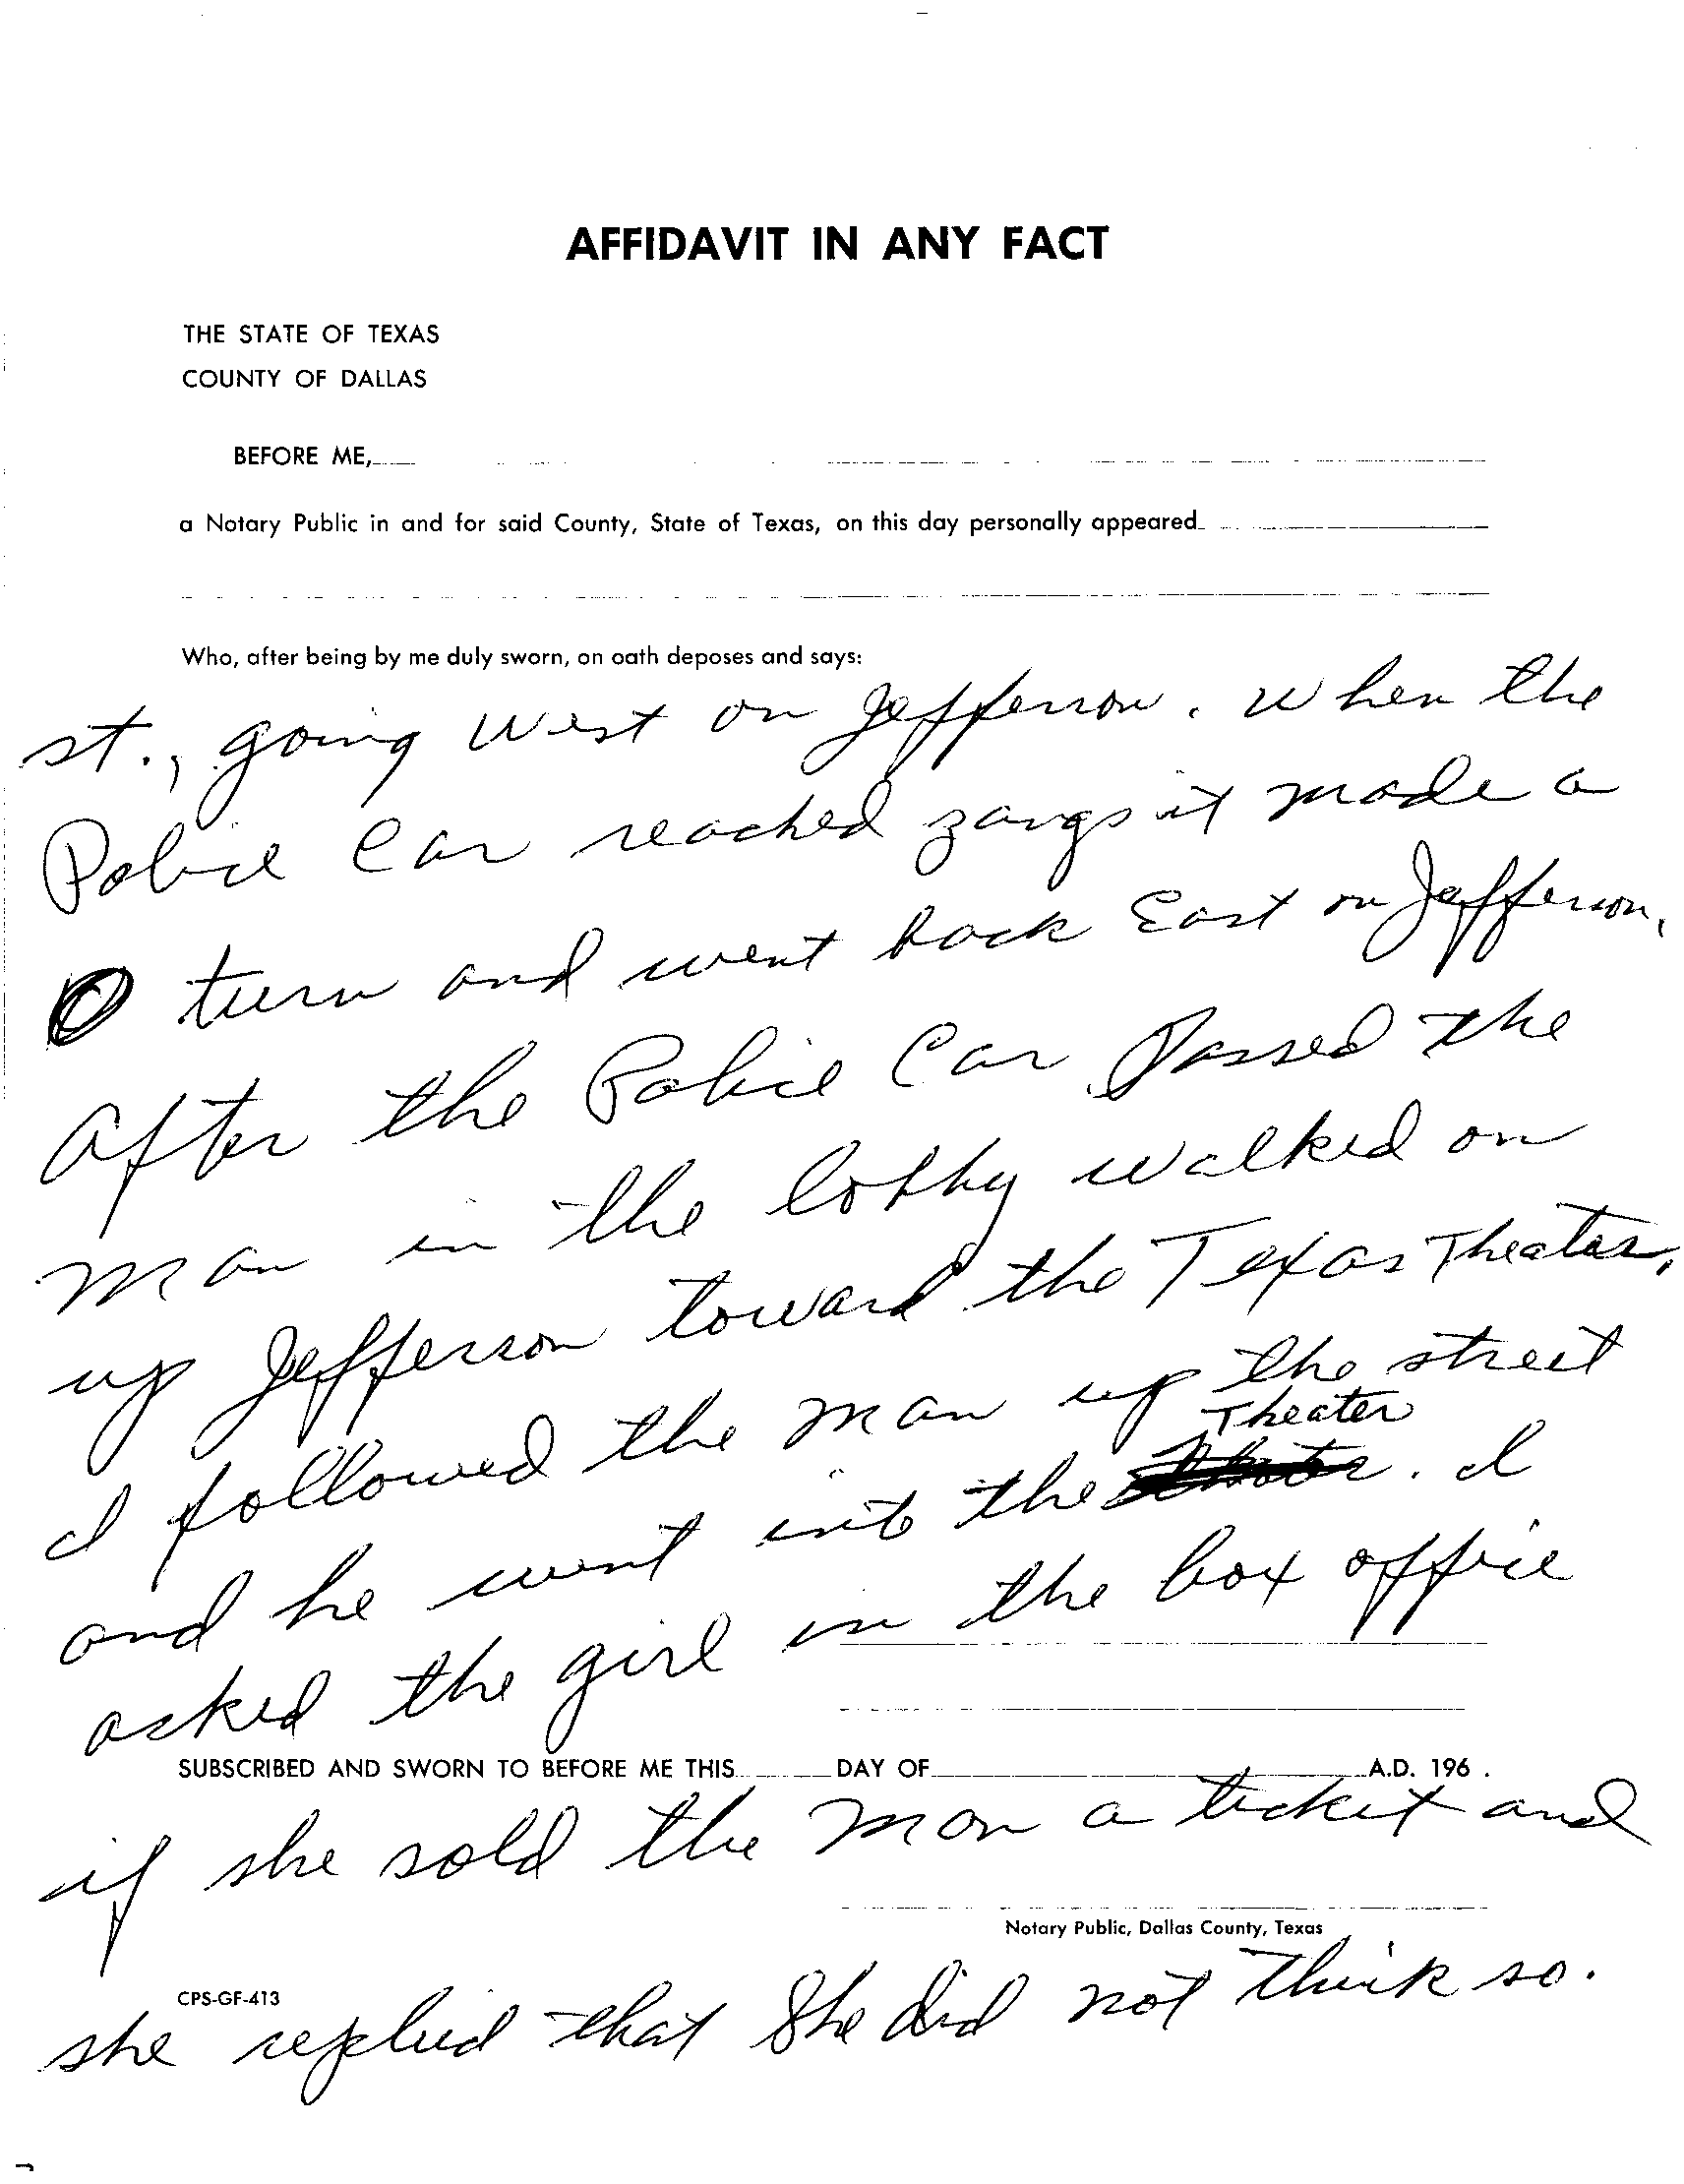 AFFIDAVIT IN ANY FACT
THE STATE OF TEXAS
COUNTY OF DALLAS
BEFORE ME,
a Notary Public in and for said County, State of Texas, on this day personally appeared
Who, after being by me duly sworn, on oath deposes and says:
st., going West on Jefferson. When the
Police Car reached zangs it made a
turn and went back East on Jefferson.
After the Police Car Passed the
man in the lobby walked on
up Jefferson toward the Texas Theater,
I followed the man up the street
Theater
and he went into the . I
asked the girl in the box office
SUBSCRIBED AND SWORN TO BEFORE ME THIS DAY OF A.D. 196 .
if she sold the man a ticket and
Notary Public, Dallas County, Texas
CPS-GF-413
she replied that She did not think so.